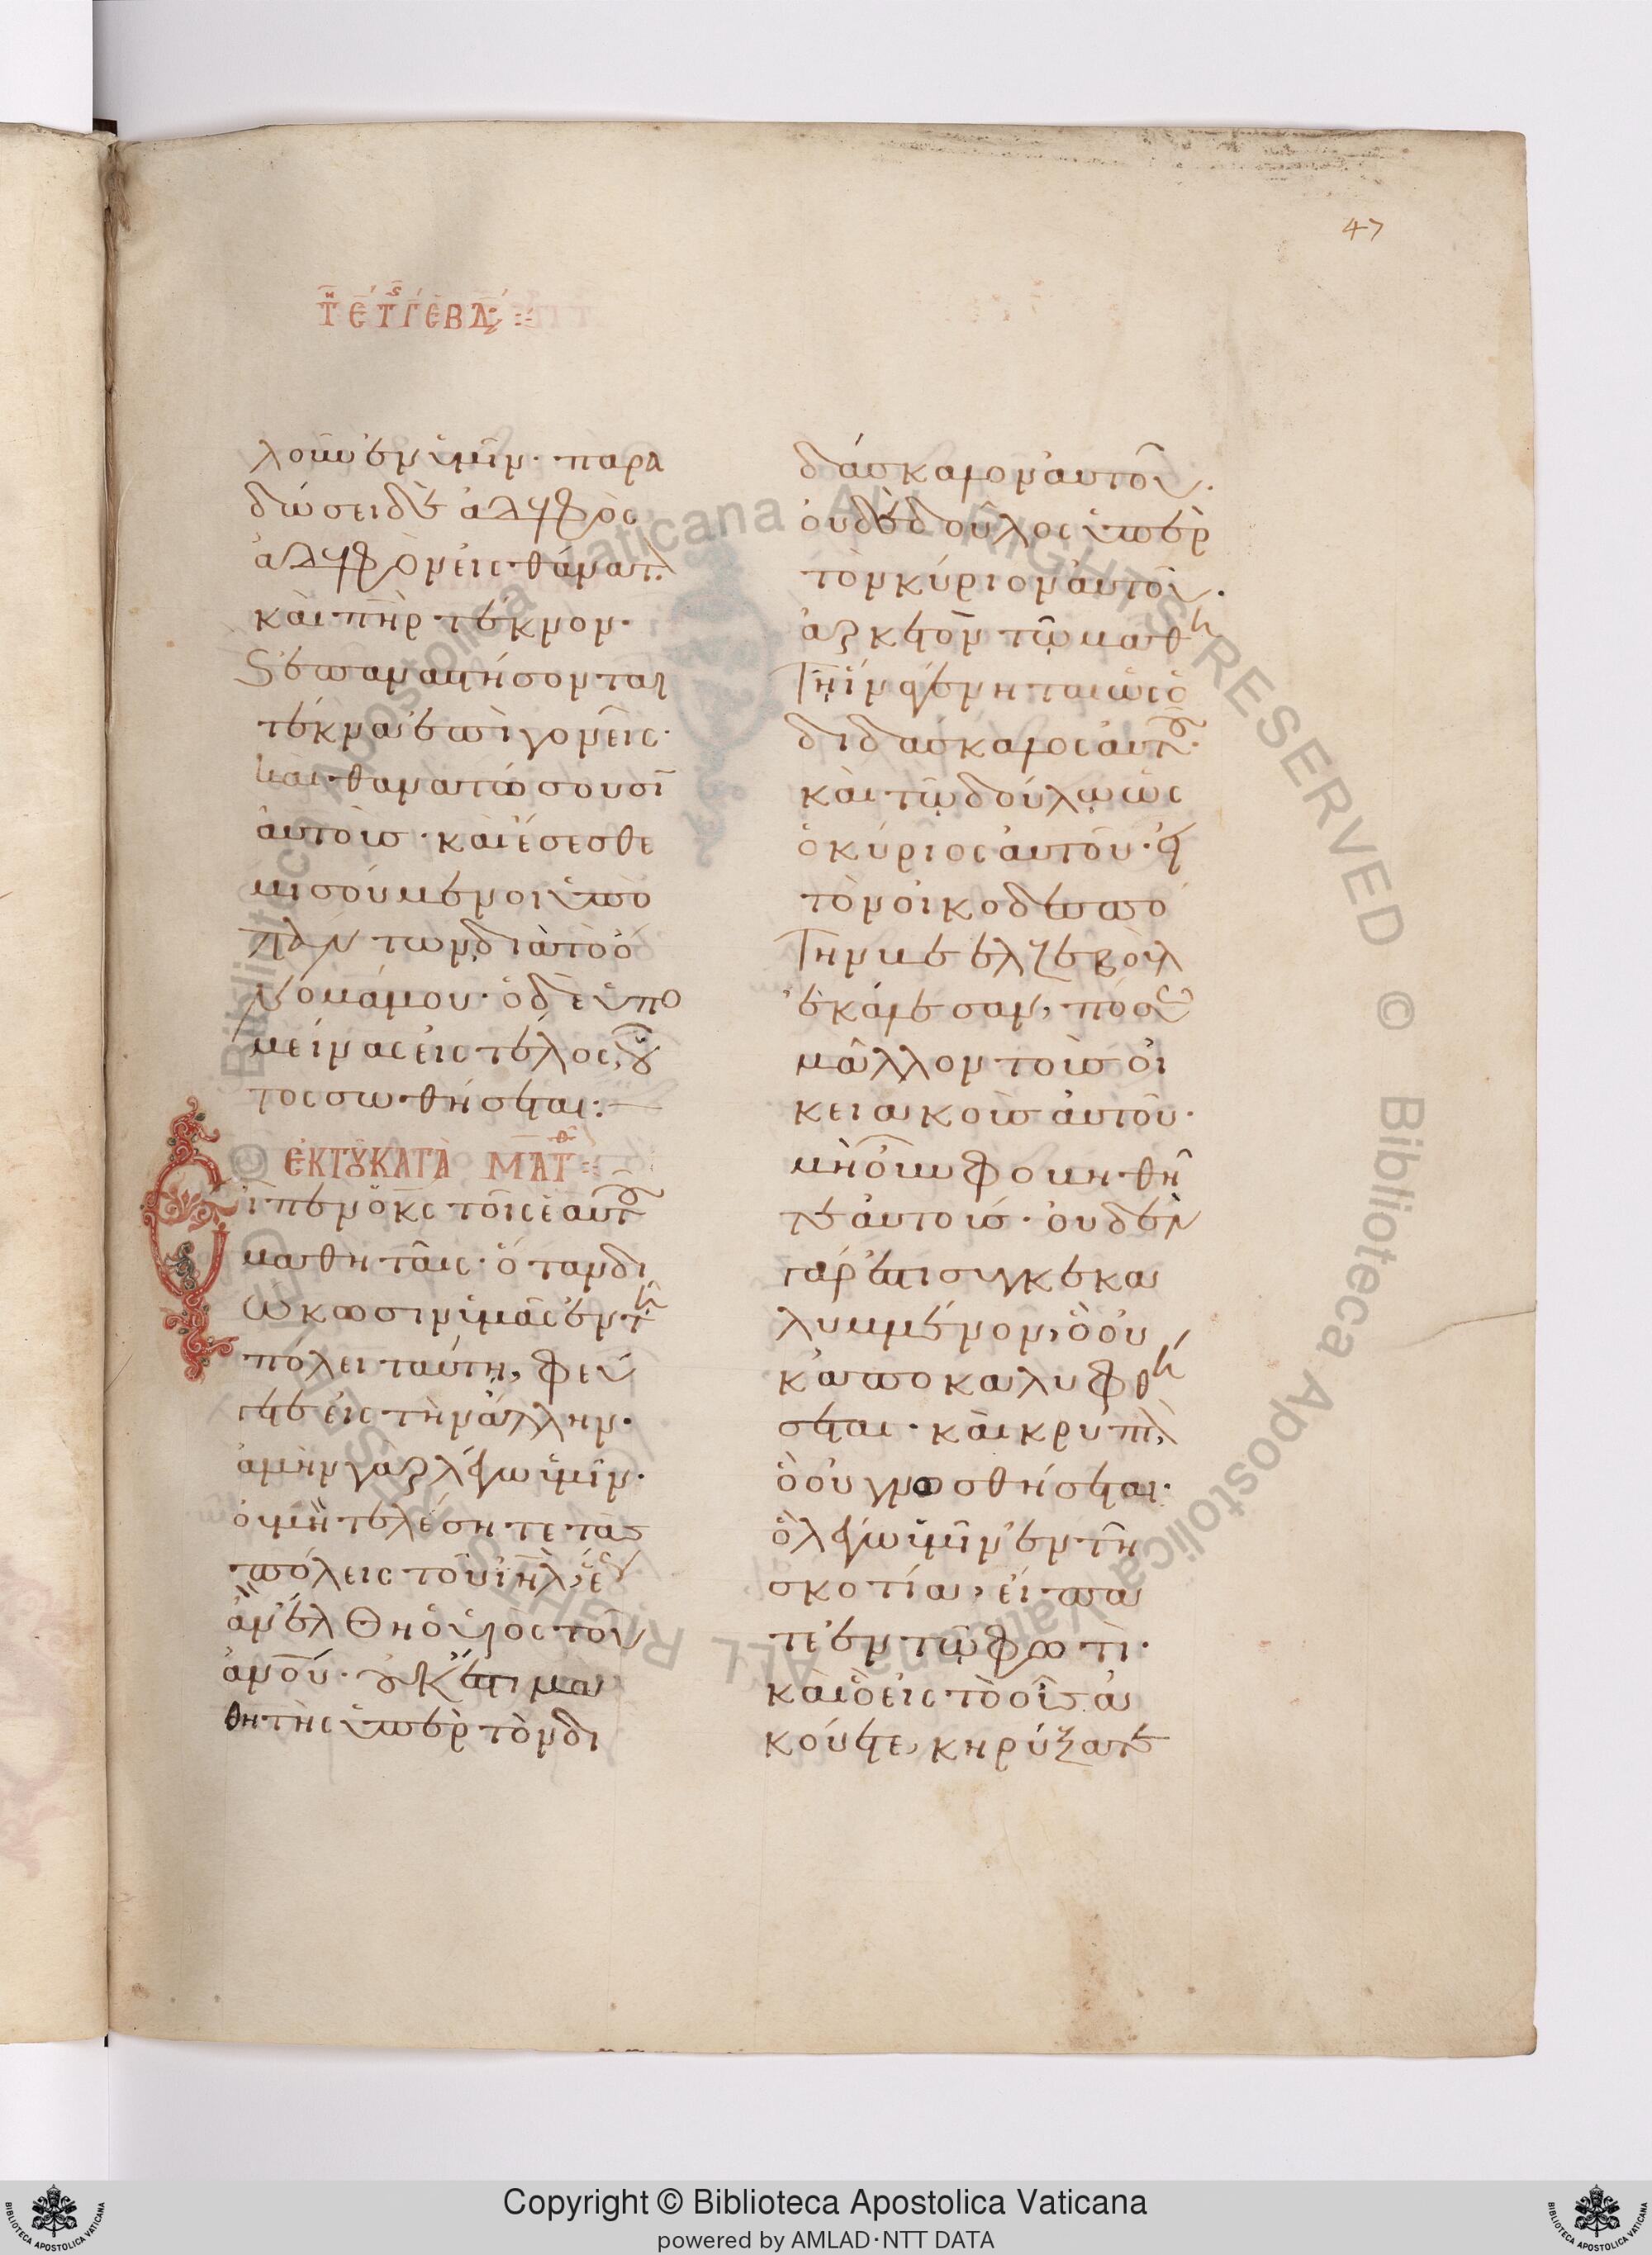 47
τῇ ε τῆς γ ἑβδ
λοῦν ἐν ὑμῖν· παρα
δώσει δὲ ἀδελφὸς
ἀδελφὸν εἰς θάνατ
καὶ πηρ τέκνον·
ἐπαναστήσονται
τέκνα ἐπὶ γονεῖς·
καὶ θανατώσουσϊ
αὐτοὺσ· καὶ ἔσεσθε
μισούμενοι ὑπὸ
πάντων διὰ τὸ ὄ
νομά μου· ὁ δὲ ὑπο
μείνας εἰς τέλος, οὗ
τος σωθήσεται:
ἐκ τοῦ κατὰ ματθ
εἶπεν ὁ κς τοῖς ἑαυτοῦ
μαθηταῖς· ὅταν δι
ώκωσιν ὑμᾶς ἐν τῆ
πόλει ταύτη, φεύ
γετε εἰς τὴν ἄλλην·
ἀμὴν γὰρ λέγω ὑμῖν·
οὐ μὴ τελέσητε τὰσ
πόλεις τοῦ ιηλ, ἕως
ἂν ἔλθη ὁ υἱὸς τοῦ
ἀνου· οὐκ ἔστι μα
θητὴς ὑπὲρ τὸν δι
δάσκαλον αὐτοῦ·
οὐδὲ δοῦλος ὑπὲρ
τὸν κύριον αὐτοῦ·
ἀρκετὸν τῷ μαθη
τῇ ἵνα γένηται ὡς ὁ
διδάσκαλος αὐτοῦ·
καὶ τῷ δούλῳ ὡς
ὁ κύριος αὐτοῦ· εἰ
τὸν οἰκοδεσπό
την μὲ ἐλζεβοὺλ
ἐκάλεσαν, πόσω
μᾶλλον τοὺσ οἰ
κειακοὺσ αὐτοῦ·
μὴ οὖν φοβηθῆ
τε αὐτούσ· οὐδὲν
γάρ ἐστι συγκεκα
λυμμένον, ὃ οὐ
κ ἀποκαλυφθή
σεται· καὶ κρυπτὸν
ὃ οὐ γνωσθήσεται·
ὃ λέγω ὑμῖν ἐν τῆ
σκοτία, εἴπα
τε ἐν τῷ φωτὶ·
καὶ ὃ εἰς τὸ οὖσ ἀ
κούετε, κηρύξατε
Copyright © Biblioteca Apostolica Vaticana
powered by AMLAD·NTT DATA